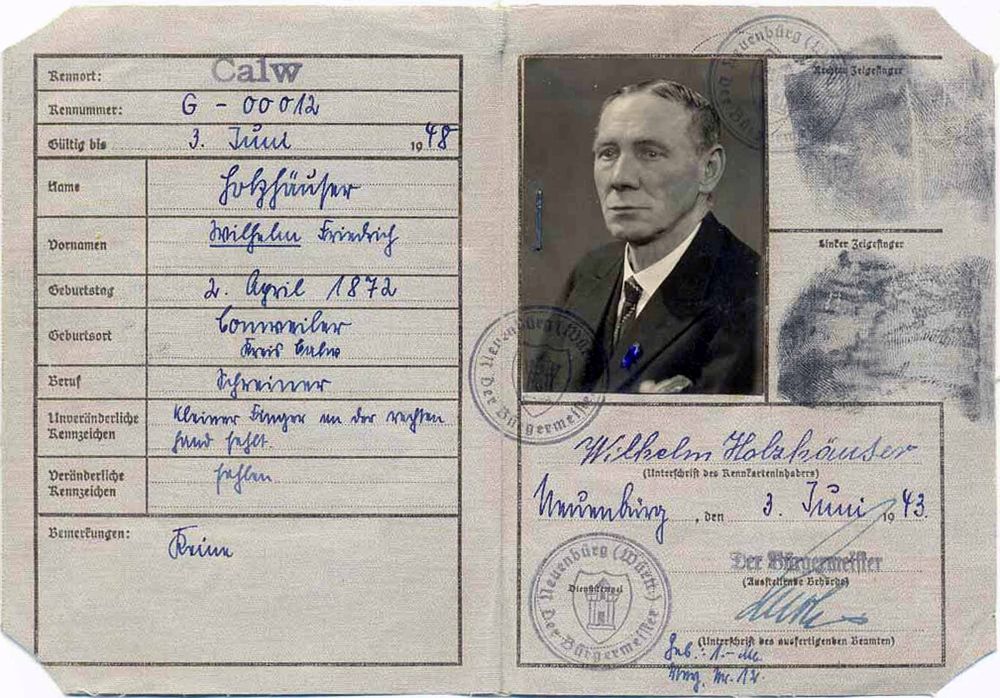 Kennort: Calw
Kennummer: G - 00012
Gültig bis 3. Juni 1948
Name Holzhäuser
Vornamen Wilhelm Friedrich
Geburtstag 2. April 1872
Geburtsort Conweiler
Kreis Calw
Beruf Schreiner
Unveränderliche Kennzeichen Kleiner Finger an der rechten
Hand fehlt.
Veränderliche Kennzeichen fehlen
Bemerkungen: Keine
Neuenbürg (Württ.)
Der Bürgermeister
Rechter Zeigefinger
Linker Zeigefinger
Neuenbürg (Württ.)
Der Bürgermeister
Wilhelm Holzhäuser
(Unterschrift des Kennkarteninhabers)
Neuenbürg, den 3. Juni 1943.
Der Bürgermeister
(Ausstellende Behörde)
Neuenbürg (Württ.)
Dienststempel
Der Bürgermeister
(Unterschrift des ausfertigenden Beamten)
Geb.: 1.-
Nr. 12